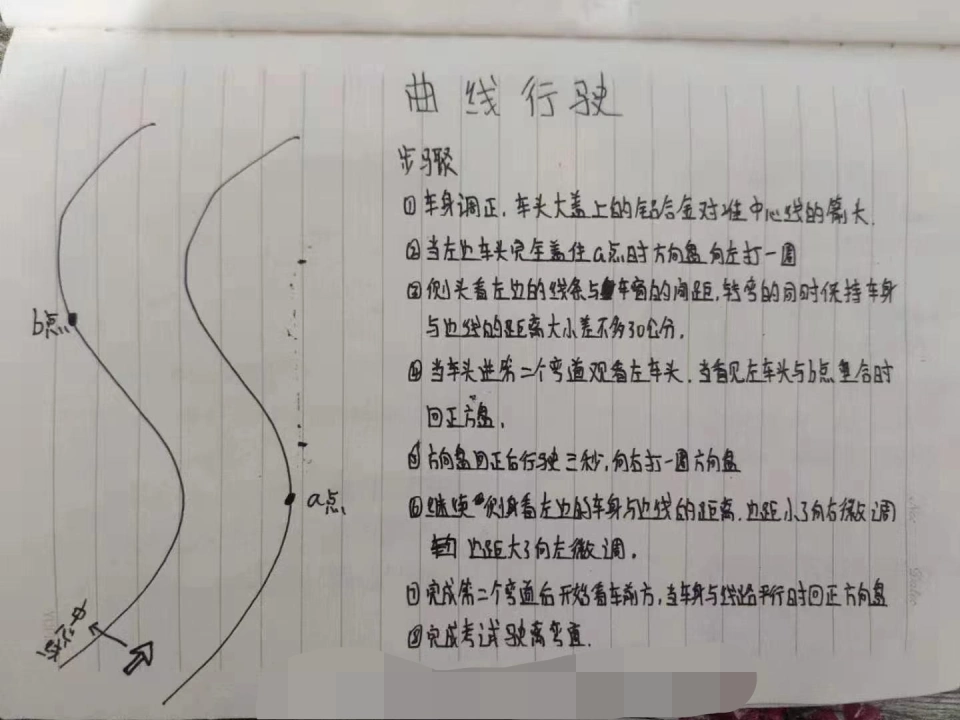 曲线行驶
步骤
①车身调正，车头大盖上的铝合金对准中心线的箭头.
②当左边车头完全盖住a点时方向盘向左打一圈
③侧头看左边的线条与车窗的间距，转弯的同时保持车身
与边线的距离大小差不多30公分.
④当车头进第二个弯道观看左车头，当看见左车头与b点重合时
回正方盘.
⑤方向盘回正后行驶三秒，向右打一圈方向盘
⑥继续侧身看左边的车身与边线的距离，边距小了向右微调
边距大了向左微调.
⑦完成第二个弯道后开始看车前方，当车身与线路平行时回正方向盘
⑧完成考试驶离弯道.
b点
a点
中心线